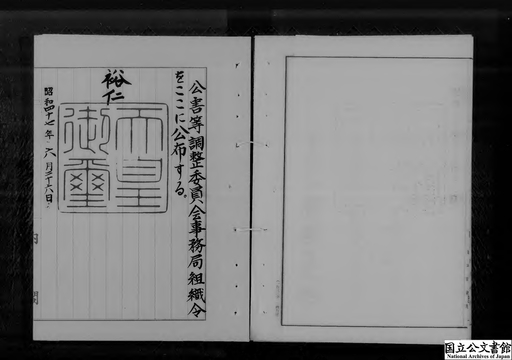 公害等調整委員会事務局組織令
をここに公布する。
裕仁
天皇
御璽
昭和四十七年六月二十六日
内閣
国立公文書館
National Archives of Japan